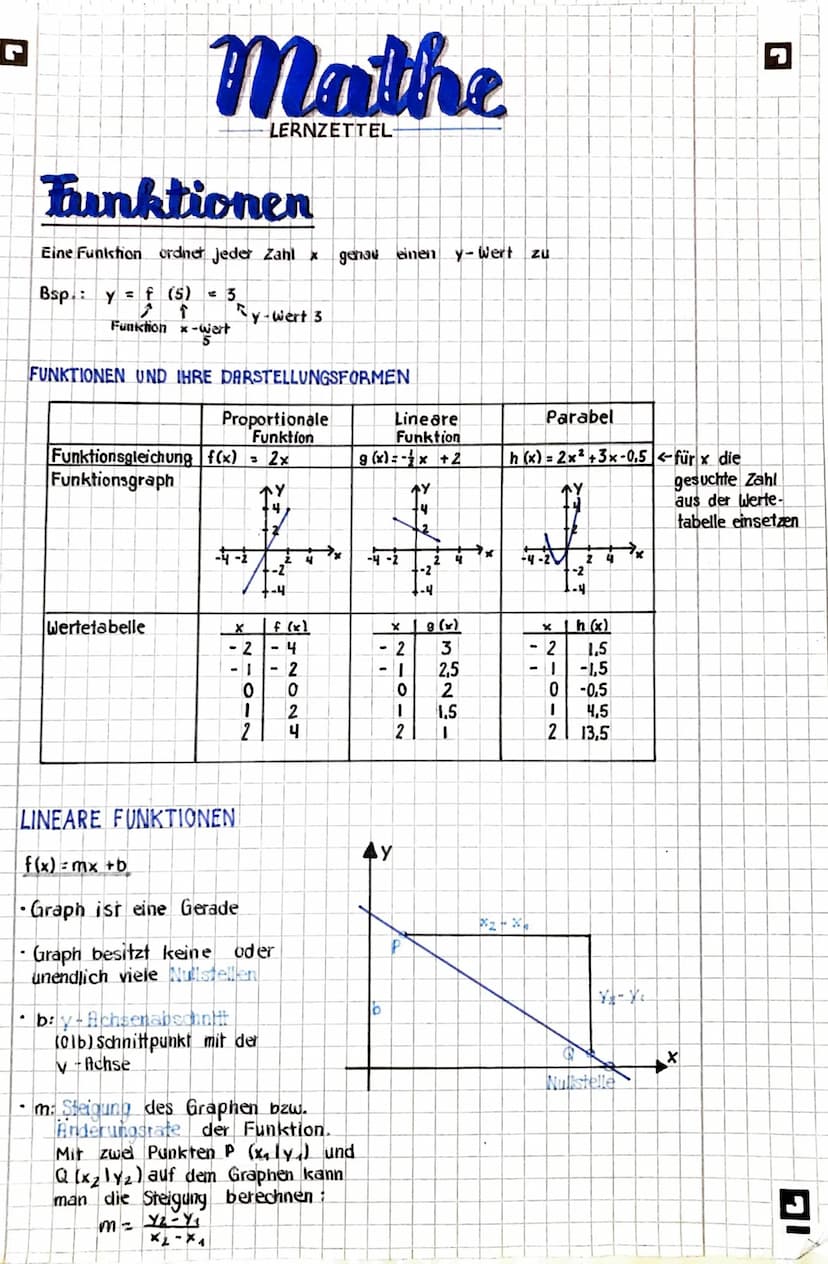 Mathe
LERNZETTEL
Funktionen
Eine Funktion ordnet jeder Zahl x genau einen y-Wert zu
Bsp.: y = f (5) = 3
Funktion x-Wert 5 y-Wert 3
FUNKTIONEN UND IHRE DARSTELLUNGSFORMEN
Proportionale Funktion Lineare Funktion Parabel
Funktionsgleichung f(x) = 2x g(x)=-½x +2 h(x)=2x²+3x-0,5 ←für x die
gesuchte Zahl
aus der Werte-
tabelle einsetzen
Funktionsgraph
y y y
4 4 4
2 2 2
-4 -2 2 4 x -4 -2 2 4 x -4 -2 2 4 x
-2 -2 -2
-4 -4 -4
Wertetabelle x f(x) x g(x) x h(x)
-2 -4 -2 3 -2 1,5
-1 -2 -1 2,5 -1 -1,5
0 0 0 2 0 -0,5
1 2 1 1,5 1 4,5
2 4 2 1 2 13,5
LINEARE FUNKTIONEN
f(x)=mx+b
· Graph ist eine Gerade
· Graph besitzt keine oder
unendlich viele Nullstellen
· b: y-Achsenabschnitt
(0|b) Schnittpunkt mit der
y-Achse
· m: Steigung des Graphen bzw.
Änderungsrate der Funktion.
Mit zwei Punkten P (x₁|y₁) und
Q(x₂|y₂) auf dem Graphen kann
man die Steigung berechnen:
m= y₂-y₁
x₂-x₁
y
x₂-x₁
P
y₂-y₁
b
Q
x
Nullstelle